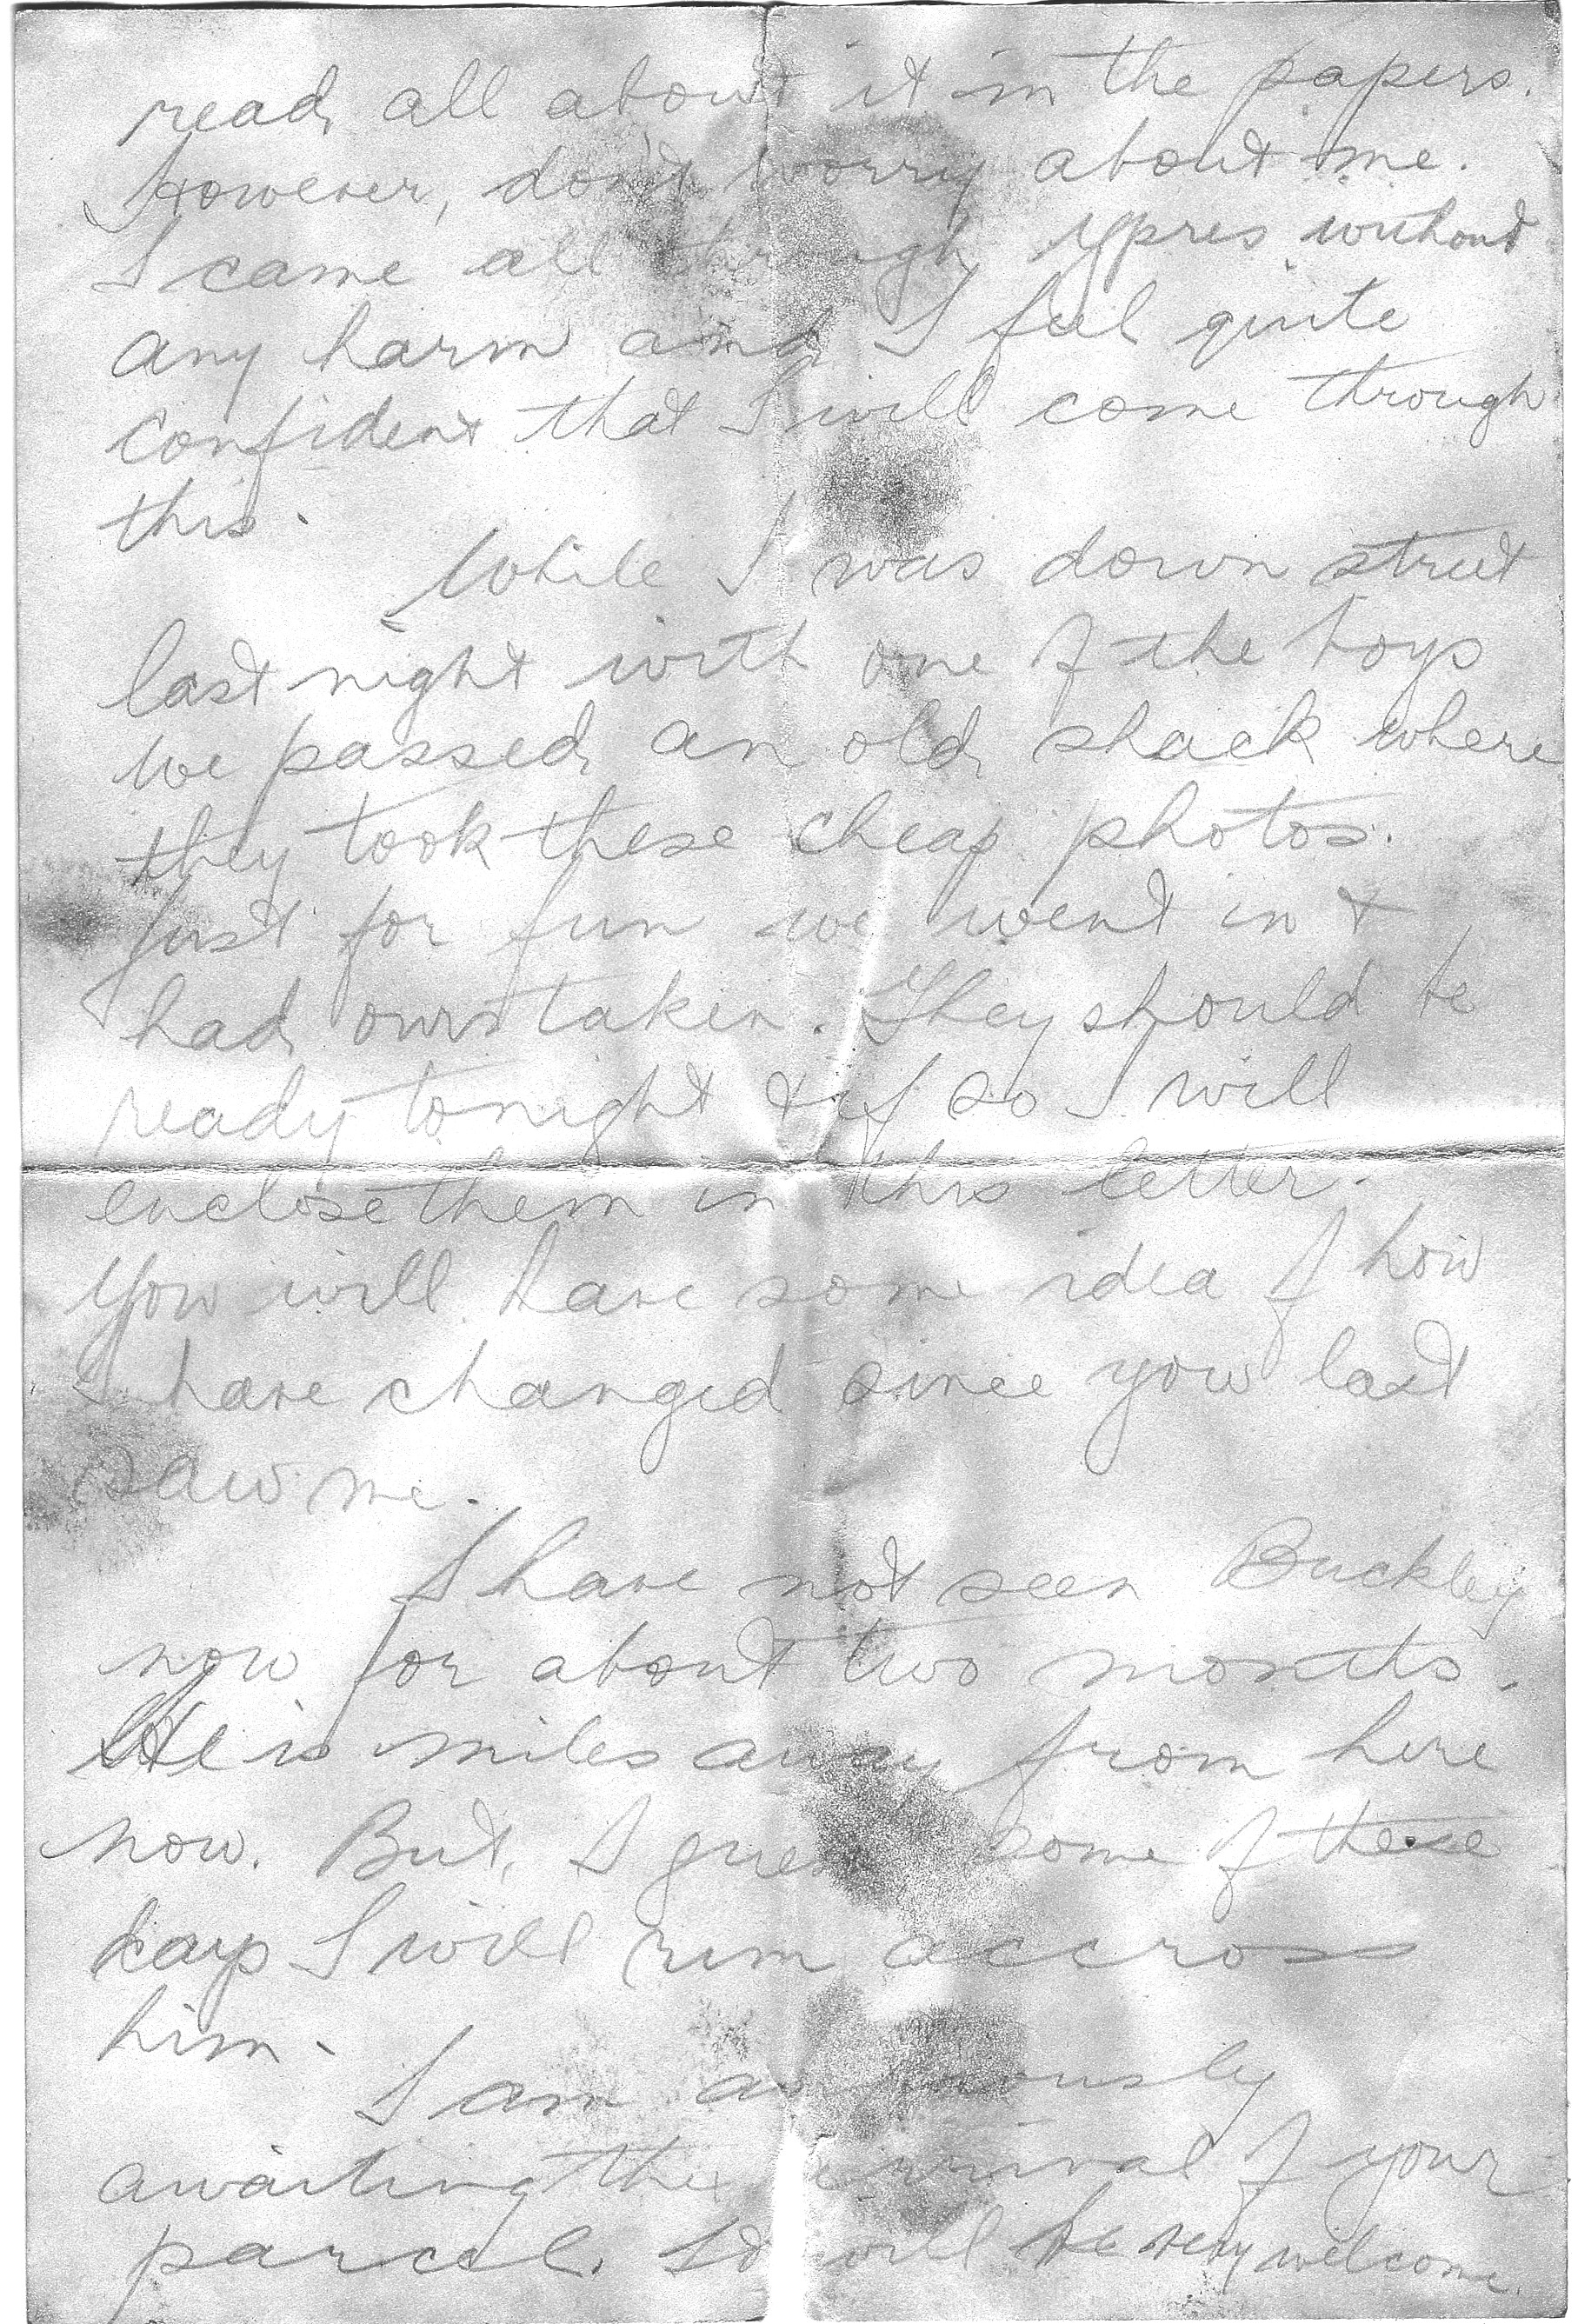 read all about it in the papers.
However, don't worry about me.
I came all through Ypres without
any harm and I feel quite
confident that I will come through
this.
While I was down street
last night with one of the boys
we passed an old shack where
they took these cheap photos.
Just for fun we went in &
had ours taken. They should be
ready tonight & if so I will
enclose them in this letter.
You will have some idea of how
I have changed since you last
saw me.
I have not seen Buckley
now for about two months.
He is miles away from here
now. But, I guess some of these
days I will run accross
him.
I am anxiously
awaiting the arrival of your
parcel. It will be very welcome.